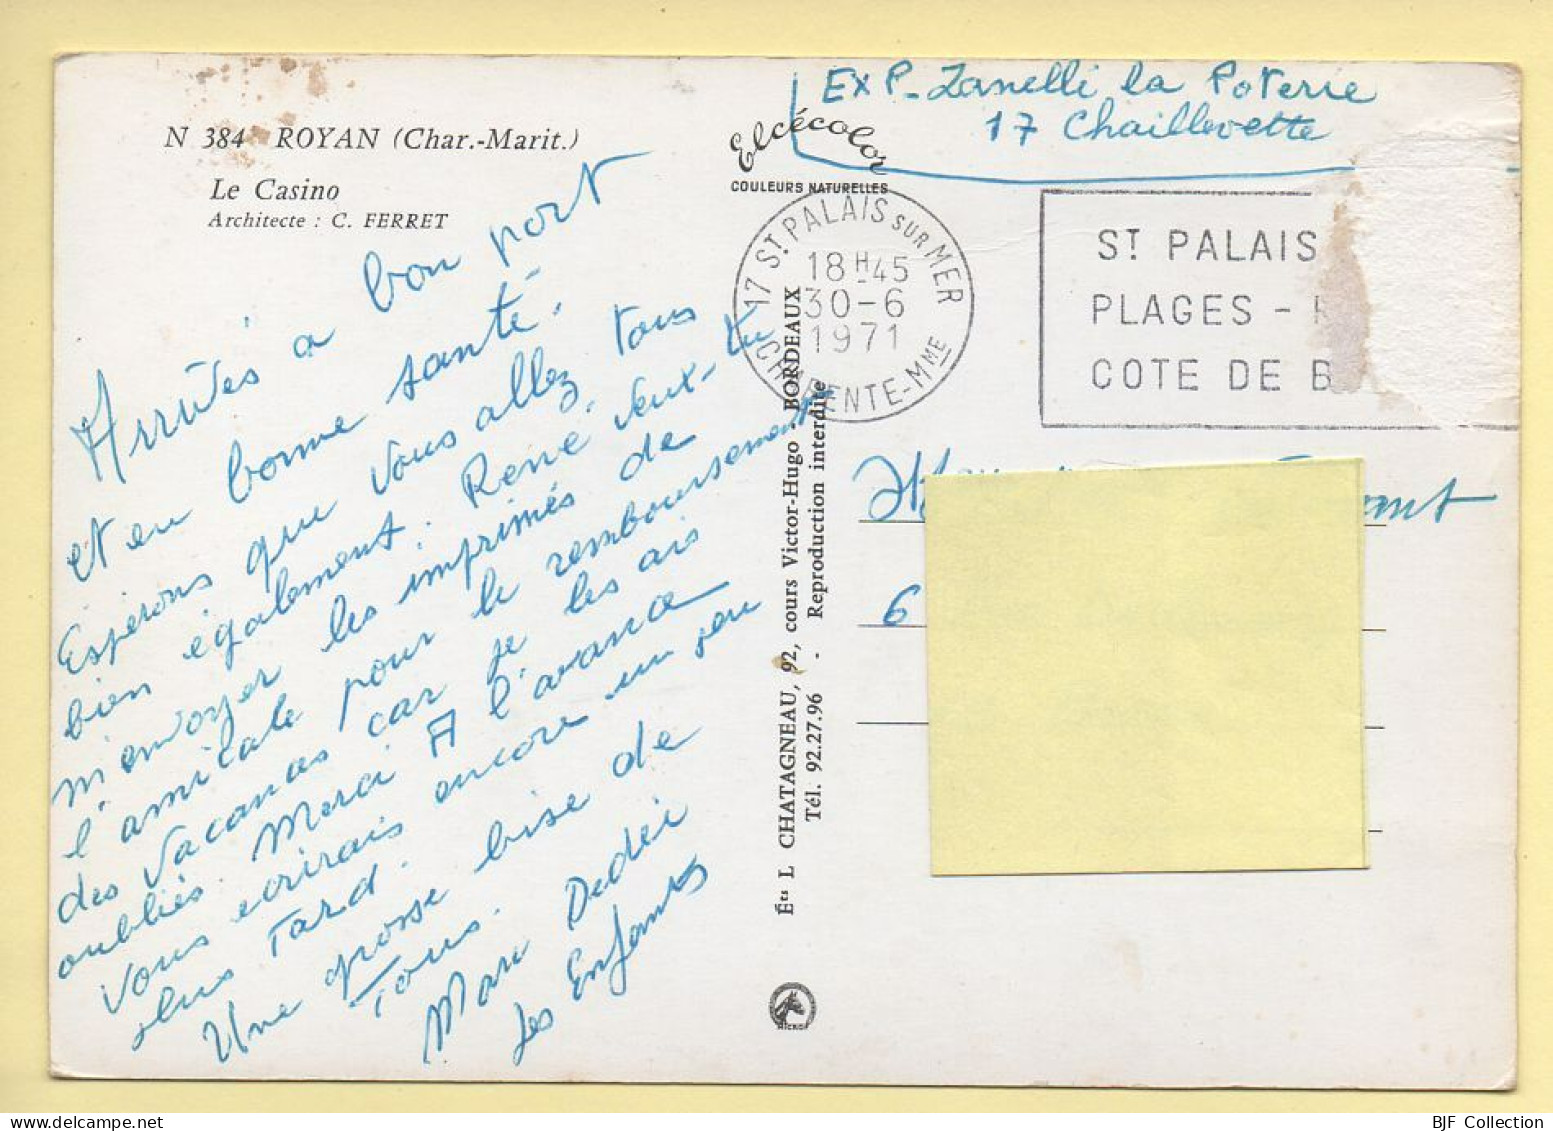 N 384 ROYAN (Char.-Marit.)
Le Casino
Architecte : C. FERRET
Arrivés a bon port
et en bonne santé.
Espérons que vous allez tous
bien également. René, veux-tu
m'envoyer les imprimés de
l'amicale pour le remboursement
des vacances car je les ais
oubliés. Merci A l'avance
Vous écrirais encore un peu
plus Tard.
Une grosse bise de
Tous.
Marc Dédéi
Les Enfants
Elcécolor
COULEURS NATURELLES
Éts L CHATAGNEAU, 92, cours Victor-Hugo - BORDEAUX
Tél. 92.27.96 - Reproduction interdite
MICRO
Exp- Zanelli la Poterie
17 Chaillevette
17 ST PALAIS SUR MER
18H45
30-6
1971
CHARENTE-MME
ST PALAIS
PLAGES -
COTE DE B
6
BJF Collection